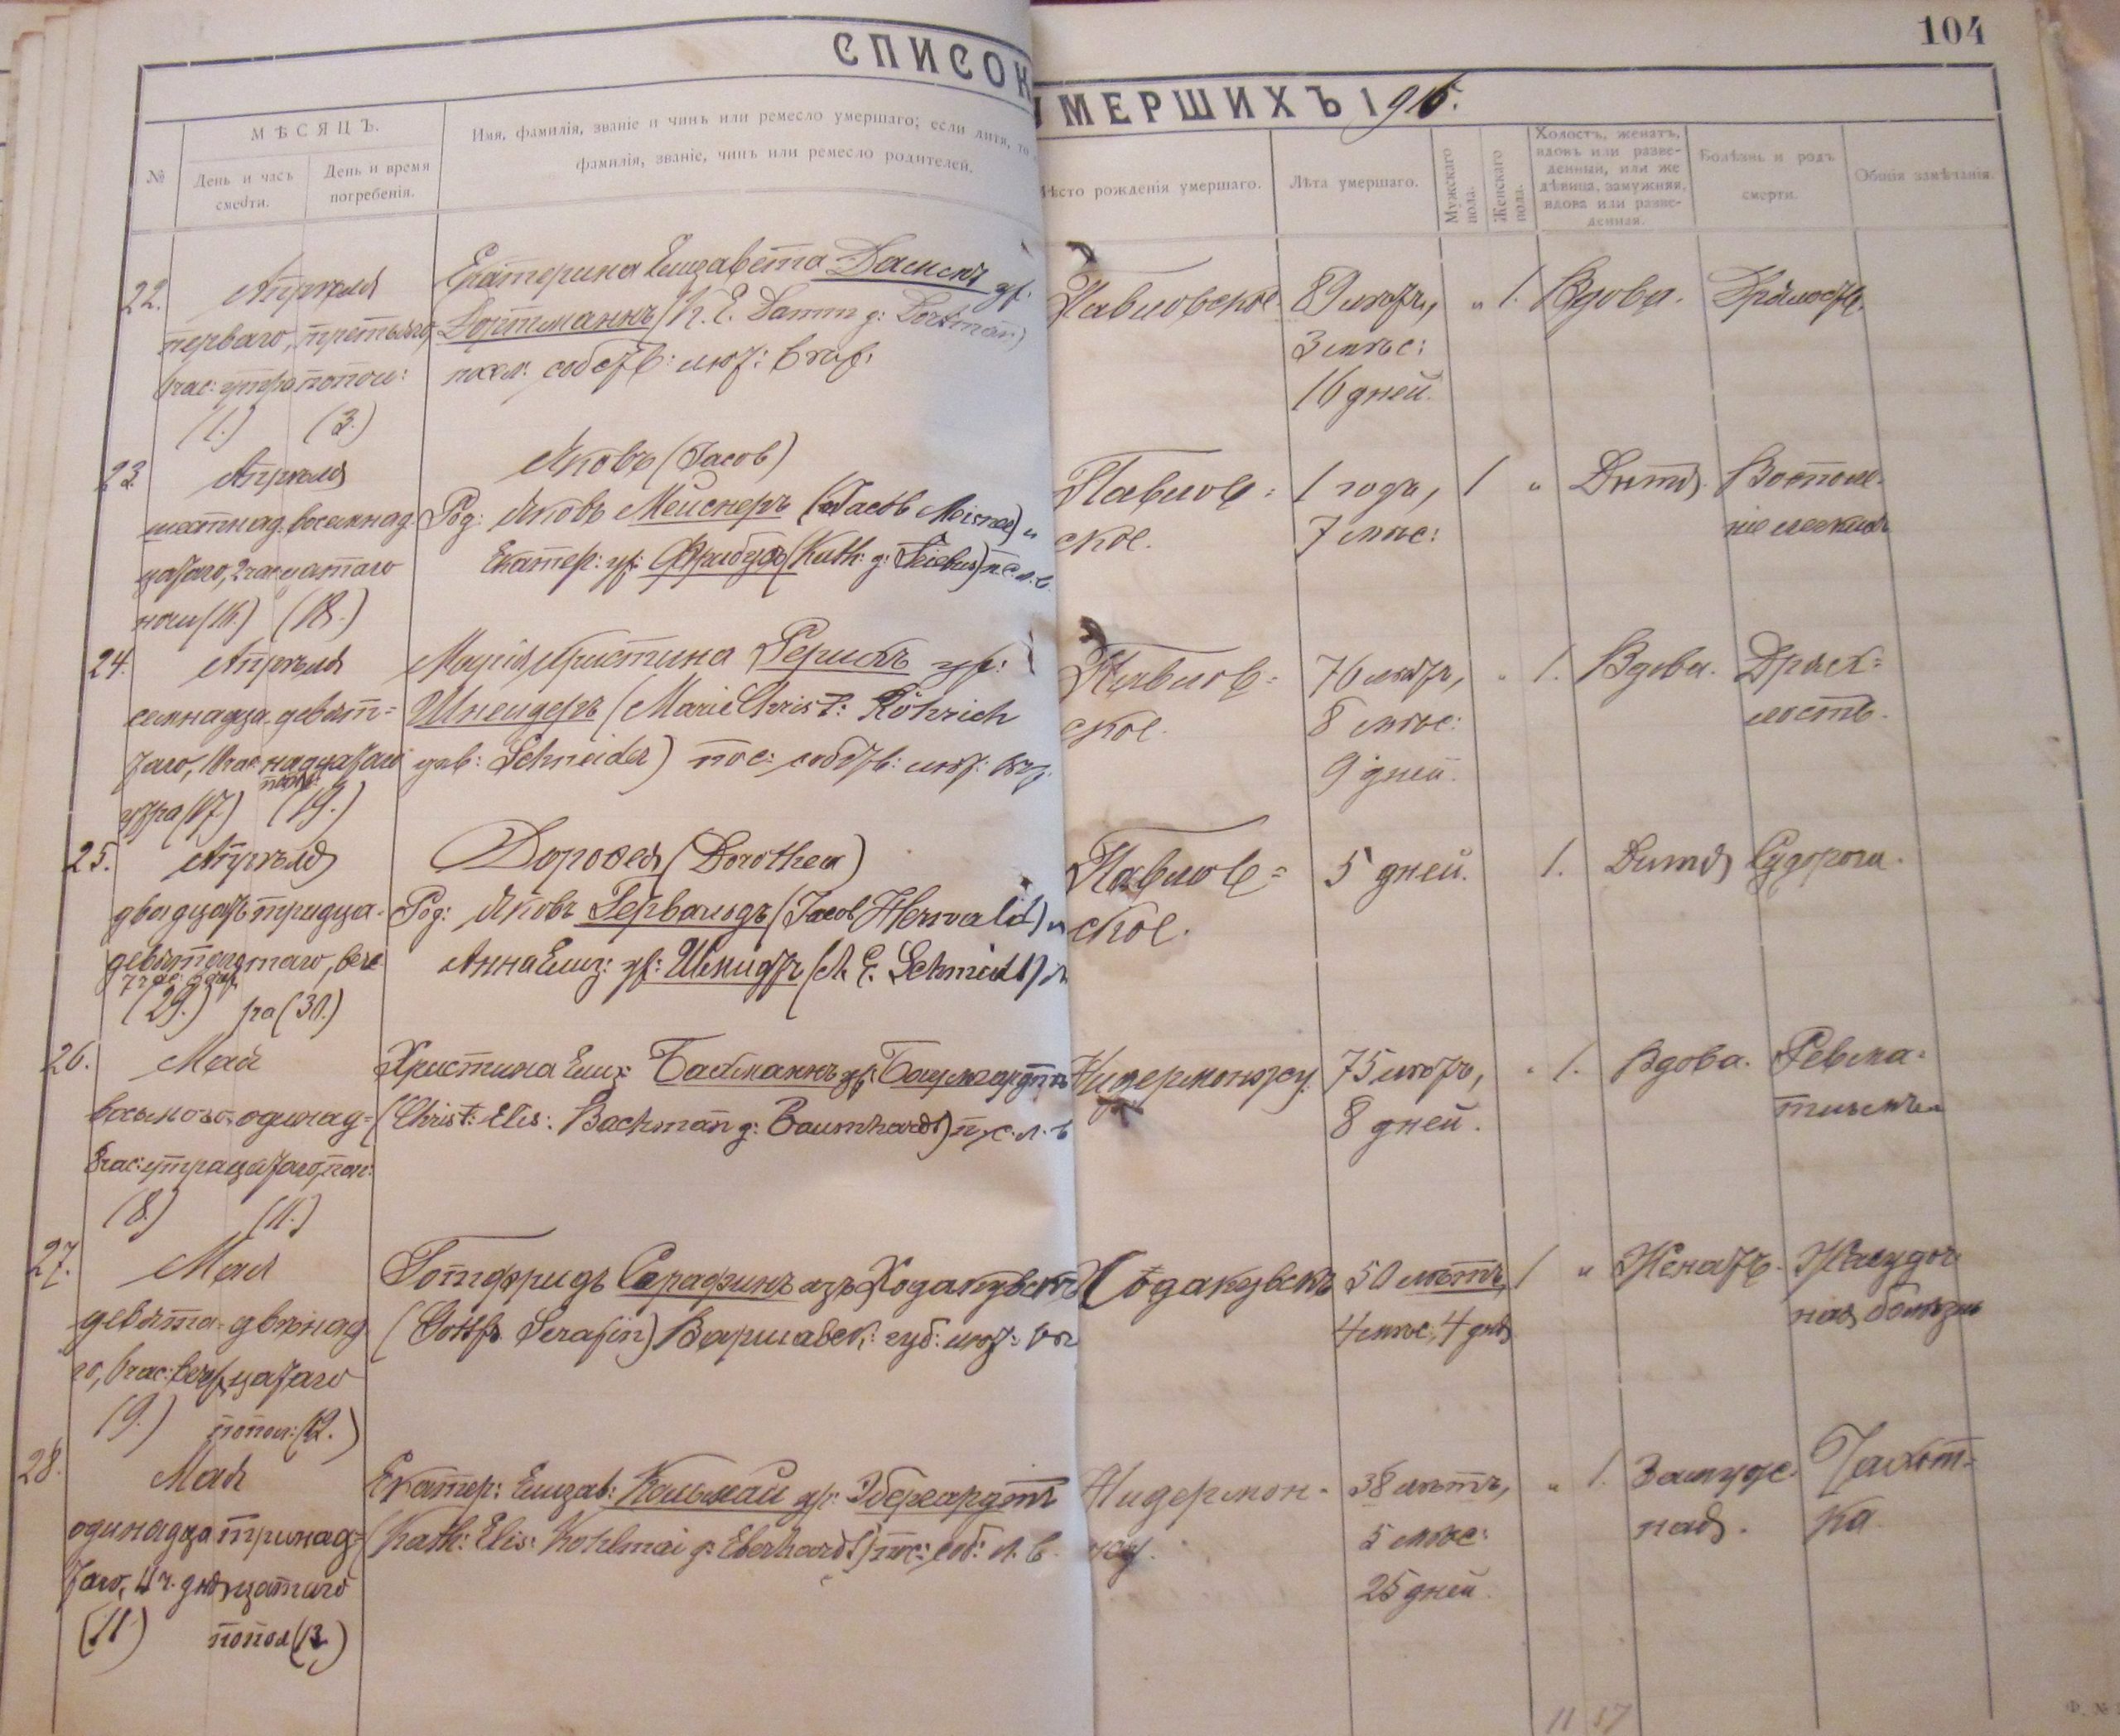 104
СПИСОК
УМЕРШИХЪ 1915.
МѢСЯЦЪ.
№
День и часъ
смерти.
День и время
погребенія.
Имя, фамилія, званіе и чинъ или ремесло умершаго; если дитя, то
фамилія, званіе, чинъ или ремесло родителей.
Мѣсто рожденія умершаго.
Лѣта умершаго.
Мужскаго
пола.
Женскаго
пола.
Холостъ, женатъ,
вдовъ или разве-
денный, или же
дѣвица, замужняя,
вдова или разве-
денная.
Болѣзнь и родъ
смерти.
Общія замѣчанія.
22.
Апрѣля
перваго,
час: утра
(1.)
третьяго,
попол:
(3.)
Екатерина Елизавета Даммъ ур:
Дортманнъ (K. E. Damm g: Dortman)
посел: собств: лют:
Павловское.
89 лѣтъ,
3 мѣс:
16 дней.
" 1.
Вдова.
Дряхлость.
23.
Апрѣля
шестнад
цатаго, 2 час
ночи (16.)
восемнад
цатаго
(18.)
Яковъ (Jacob)
Род: Яковъ Мейснеръ (Jacob Meisner) и
Екатер: ур: Фрибусъ (Kath: g: Friebus) п. с. л. в.
Павлов=
ское.
1 годъ,
7 мѣс:
1 "
Дитя.
Воспале-
ніе легкихъ
24.
Апрѣля
семнадца
таго, час
утра (17.)
девят=
надцатаго
попол:
(19.)
Марія Кристина Рерихъ ур:
Шнейдеръ (Marie Christ: Röhrich
geb: Schneider) пос: собств: лют:
Павлов=
ское.
76 лѣтъ,
8 мѣс:
9 дней.
" 1.
Вдова.
Дрях=
лость.
25.
Апрѣля
двадцать
девятаго
(29.)
тридца-
таго, вече
ра (30.)
Доровея (Dorothea)
Род: Яковъ Гервальдъ (Jacob Herwald) и
Анна Елиз: ур: Шмидтъ (A. E. Schmidt)
Павлов=
ское.
5 дней.
1.
Дитя
Судороги.
26.
Мая
восьмого
8 час: утра
(8.)
одинад=
цатаго, поп:
(11.)
Христина Елиз: Бахманнъ ур: Баумгардтъ
(Christ: Elis: Bachman g: Baumhardt) п. с. л. в
Нидермонжу.
75 лѣтъ,
8 дней.
" 1.
Вдова.
Ревма=
тизмъ
27.
Мая
девята-
го, час: веч.
(9.)
двѣнад
цатаго
попол: (12.)
Готфридъ Серафинъ изъ Ходаковскъ
(Gottfr. Serafin) Варшавск: губ: лют:
Ходаковскъ
50 лѣтъ,
4 мѣс: 4 дня
1 "
Женатъ.
Желудоч
ная болѣзнь
28.
Мая
одинадца
таго, 4 ч. дня
(11)
тринад=
цатаго
попол (13.)
Екатер: Елизав: Кольмай ур: Эбергардтъ
(Kath: Elis: Kohlmai g: Eberhardt) пос: соб: л. в.
Нидермон-
жу.
38 лѣтъ,
5 мѣс:
25 дней.
" 1.
Замуж-
няя.
Чахот=
ка
11 17